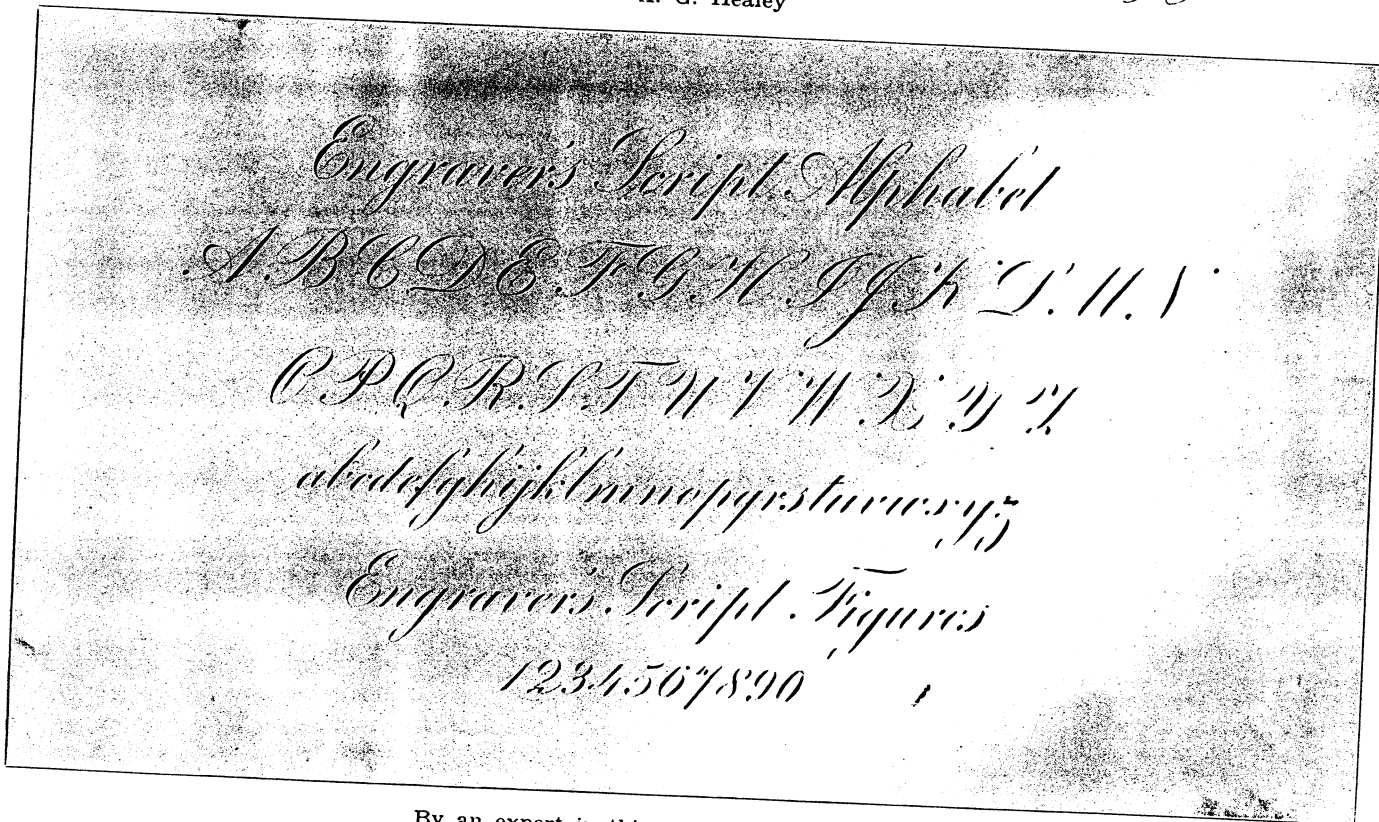 Healey
Engraver's Script Alphabet
A B C D E F G H I J K L M N
O P Q R S T U V W X Y Z
abcdefghijklmnopqrstuvwxyz
Engravers Script Figures
1234567890
By an expert in